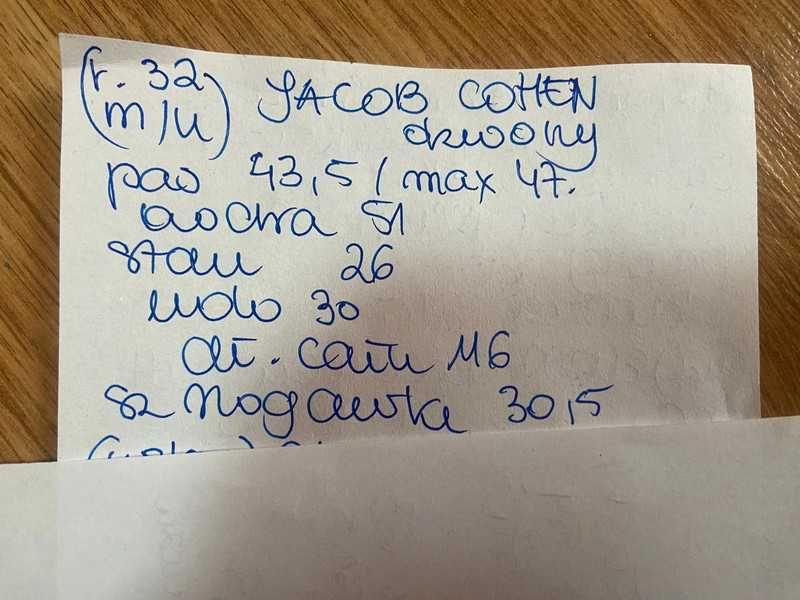 (r. 32
m/u) JACOB COHEN
dzwony
pas 43,5 / max 47.
biodra 51
stan 26
udo 30
dł. całk 116
sz nogawka 30,5